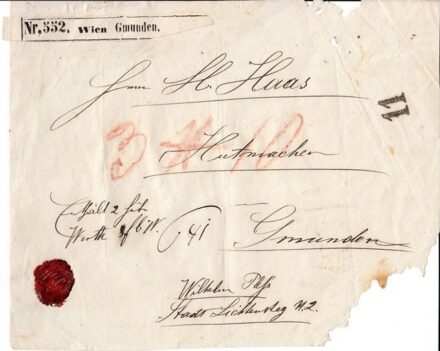 Nr. 552. Wien Gmunden.
Herrn M. Haas
11
3 10
Hutmacher
Enthält 2 Hüte
Werth f 6 W.
6 41
Gmunden
Wilhelm
Stadt Lichtensteg N. 2.